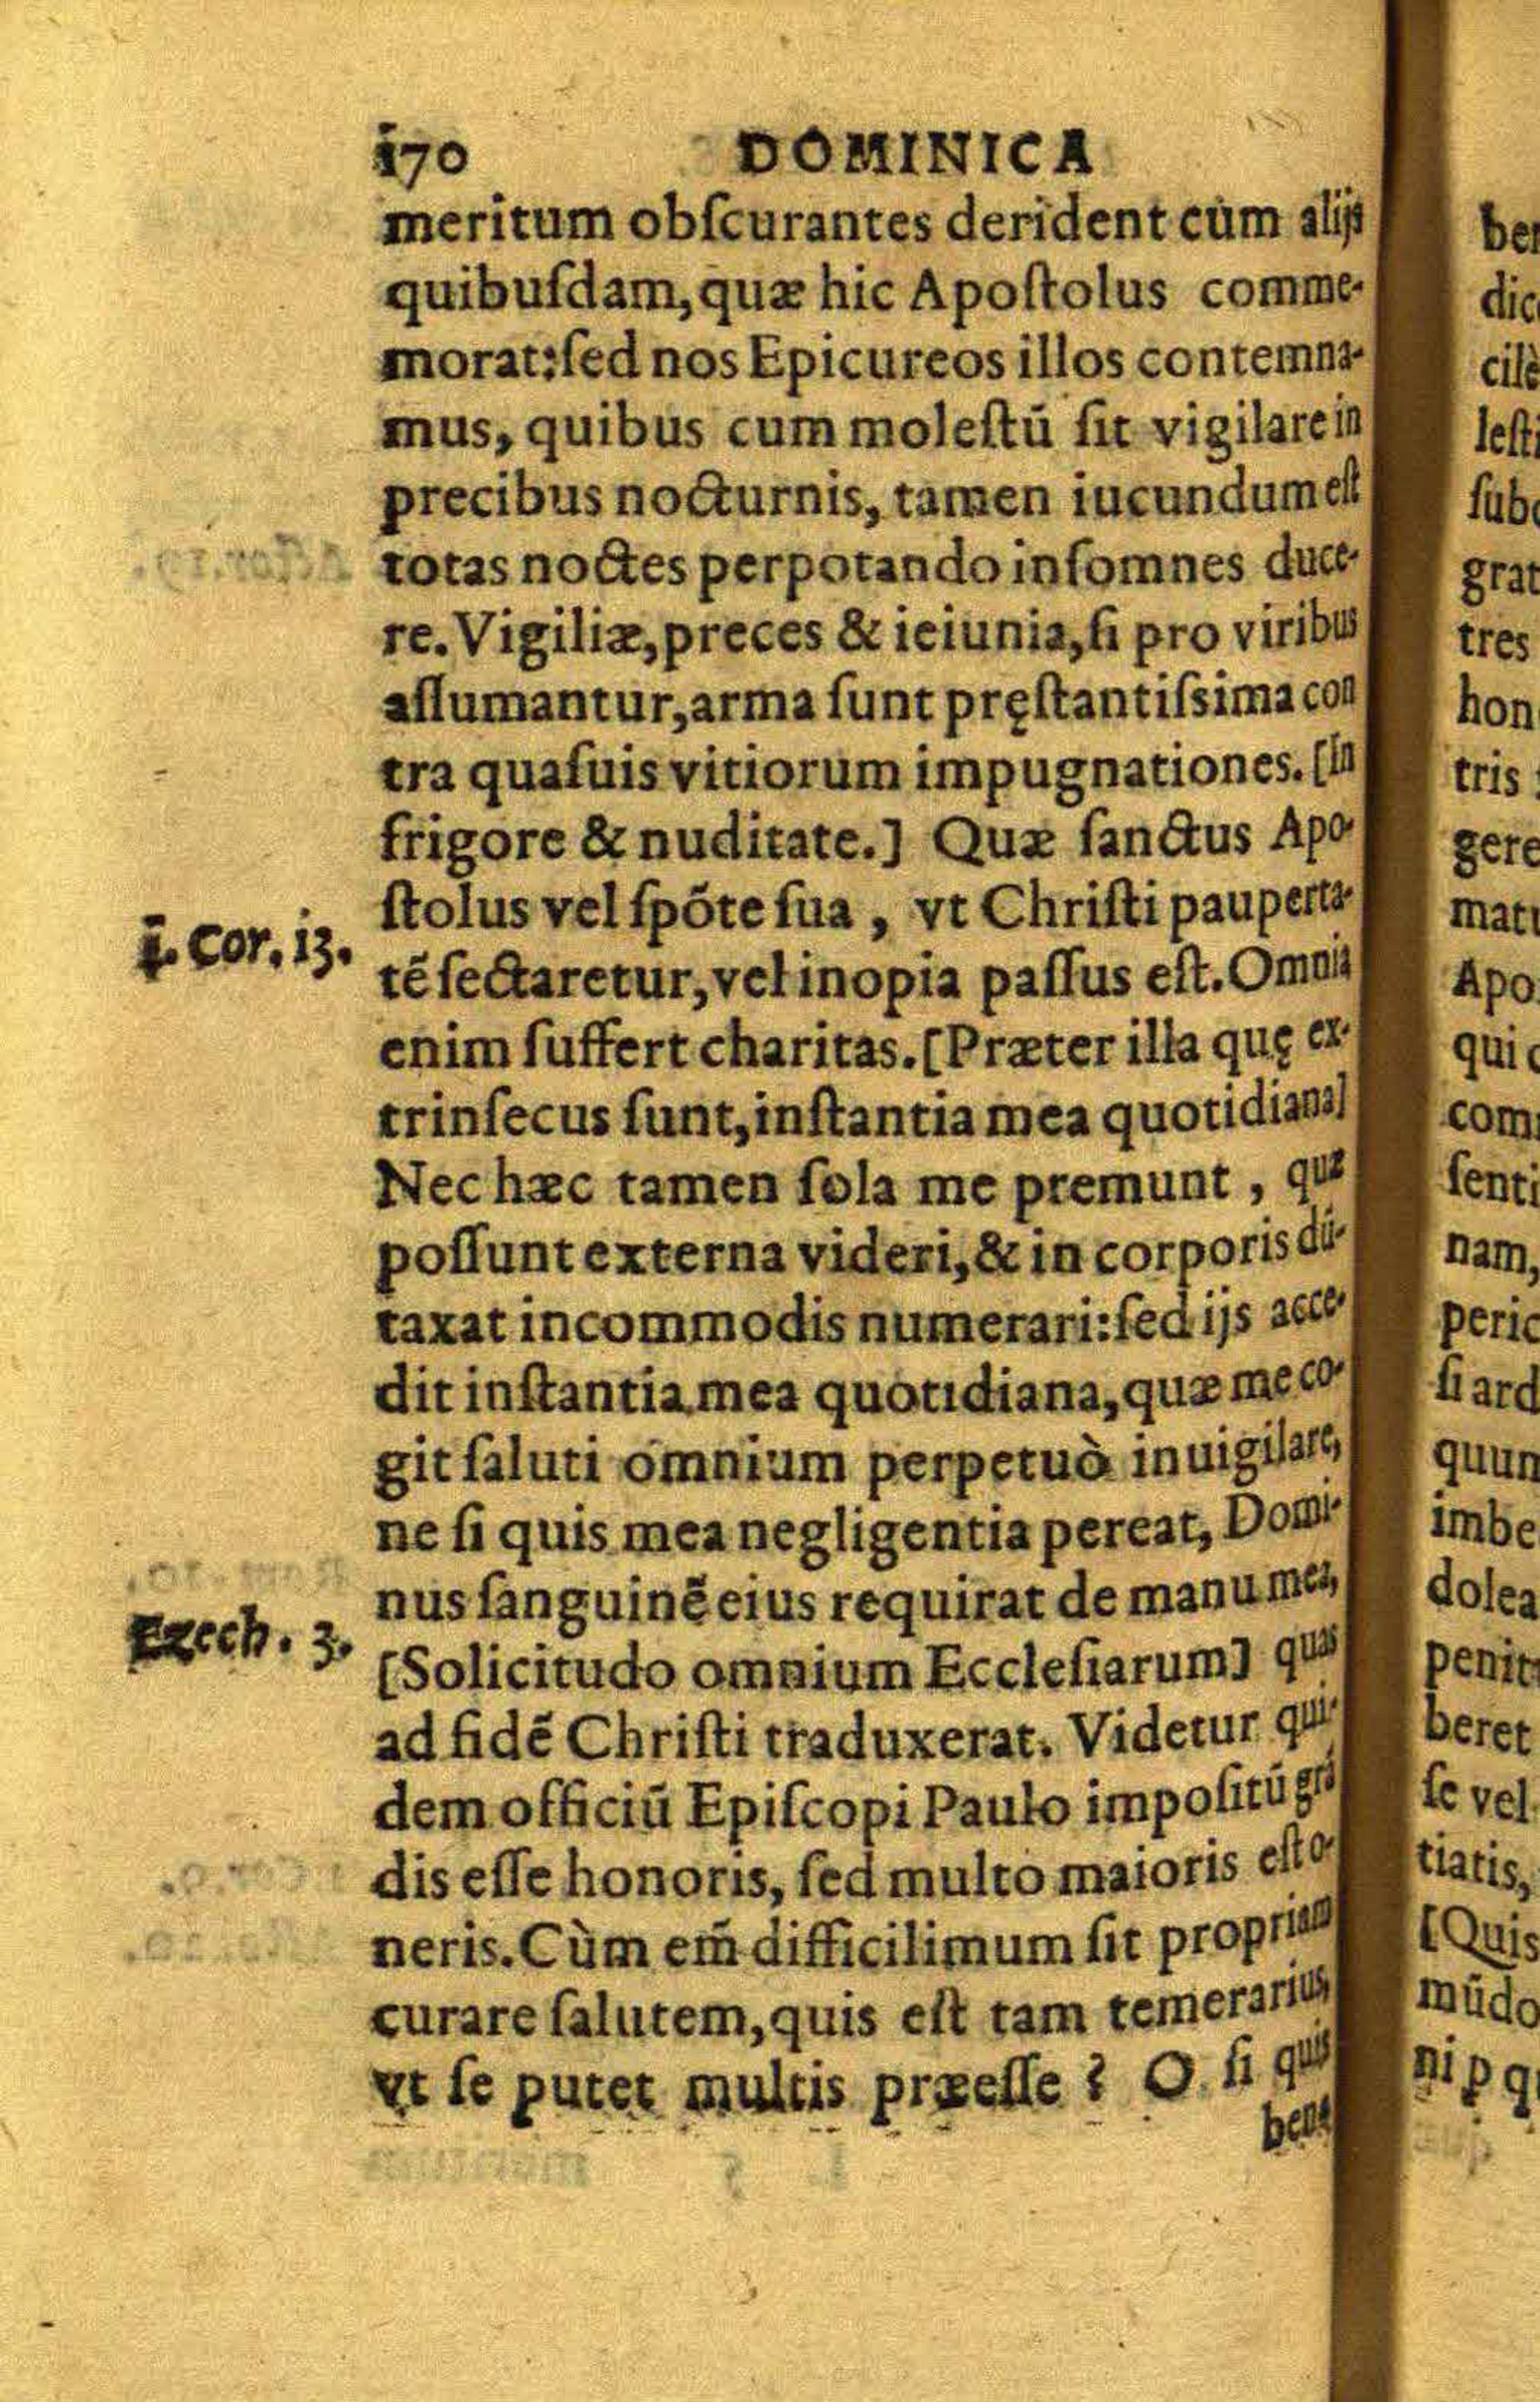 170 DOMINICA
meritum obſcurantes derident cùm alijs
quibuſdam, quæ hic Apoſtolus comme-
morat: ſed nos Epicureos illos contemna-
mus, quibus cum moleſtū ſit vigilare in
precibus nocturnis, tamen iucundum eſt
totas noctes perpotando inſomnes duce-
re. Vigiliæ, preces & ieiunia, ſi pro viribus
aſſumantur, arma ſunt pręſtantiſsima con
tra quaſuis vitiorum impugnationes. [In
frigore & nuditate.] Quæ ſanctus Apo-
ſtolus vel ſpōte ſua, vt Chriſti pauperta-
1. Cor. 13.
tē ſectaretur, vel inopia paſſus eſt. Omnia
enim ſuffert charitas. [Præter illa quę ex-
trinſecus ſunt, inſtantia mea quotidiana]
Nec hæc tamen ſola me premunt, quæ
poſſunt externa videri, & in corporis dū-
taxat incommodis numerari: ſed ijs acce-
dit inſtantia mea quotidiana, quæ me co-
git ſaluti omnium perpetuò inuigilare,
ne ſi quis mea negligentia pereat, Domi-
nus ſanguinē eius requirat de manu mea,
Ezech. 3.
[Solicitudo omnium Eccleſiarum] quas
ad fidē Chriſti traduxerat. Videtur qui-
dem officiū Epiſcopi Paulo impoſitū grā
dis eſſe honoris, ſed multo maioris eſt o-
neris. Cùm em̄ difficilimum ſit propriam
curare ſalutem, quis eſt tam temerarius,
vt ſe putet multis præeſſe? O ſi quis
bene
ber
dic
cilè
leſti
ſub
grat
tres
hon
tris
gere
matu
Apo
qui
com
ſenti
nam,
peric
ſi ard
quum
imbe
dolea
penit
beret
ſe vel
tiatis,
[Quis
mūdo
ni p q